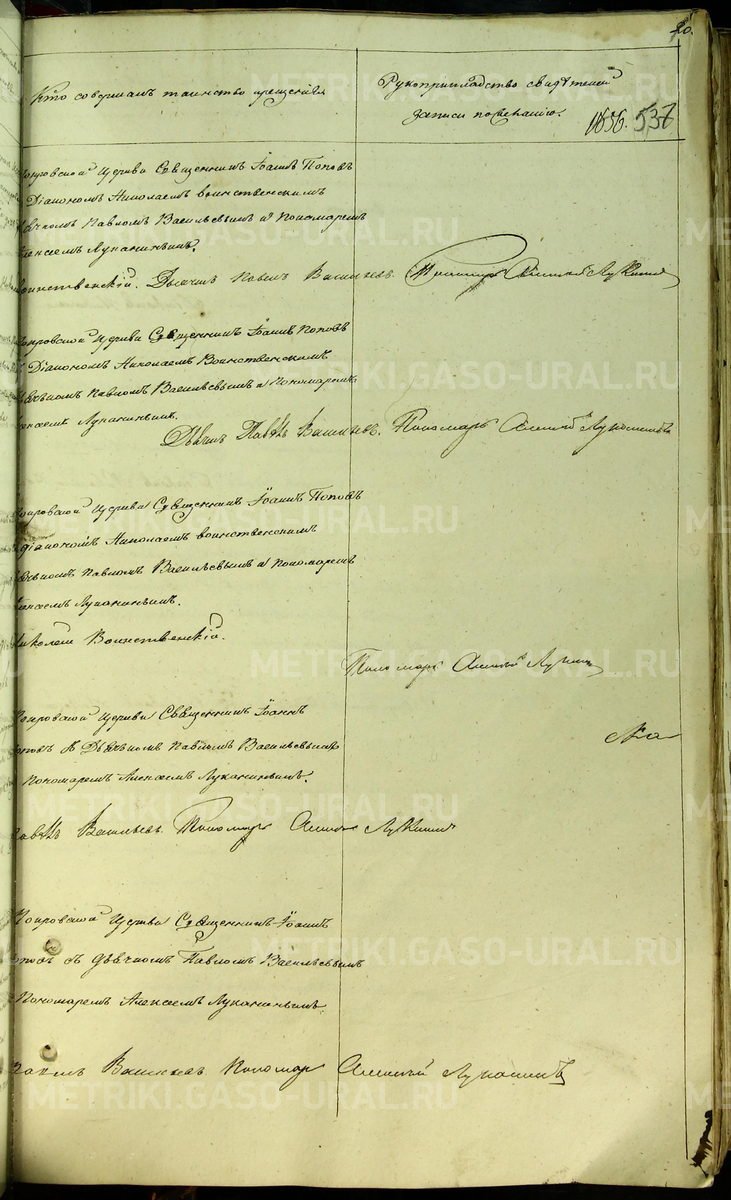 20.
Кто совершалъ таинство крещенія
Рукоприкладство свидѣтелей
записи по желанію.
1856. 537
Покровской Церкви Священникъ Іоаннъ Поповъ
Діакономъ Николаемъ Воинственскимъ
Дьячкомъ Павломъ Васильевымъ и Пономаремъ
Алексеемъ Луканинымъ.
Воинственскій. Дьячекъ Павелъ Васильевъ. Пономарь Алексей
Покровской Церкви Священникъ Іоаннъ Поповъ
съ Діакономъ Николаемъ Воинственскимъ
Дьячкомъ Павломъ Васильевымъ и Пономаремъ
Алексеемъ Луканинымъ.
Васильевъ. Пономарь Алексей Луканинъ
Покровской Церкви Священникъ Іоаннъ Поповъ
діакономъ Николаемъ Воинственскимъ
Дьячкомъ Павломъ Васильевымъ и Пономаремъ
Алексеемъ Луканинымъ.
Николай Воинственскій.
Пономарь Алексей
Покровской Церкви Священникъ Іоаннъ
Поповъ съ Дьячкомъ Павломъ Васильевымъ
Пономаремъ Алексеемъ Луканинымъ.
Васильевъ. Пономарь Алексей
Покровской Церкви Священникъ Іоаннъ
Поповъ съ дьячкомъ Павломъ Васильевымъ
Пономаремъ Алексеемъ Луканинымъ
Васильевъ Пономарь Алексей Луканинъ
METRIKI.GASO-URAL.RU